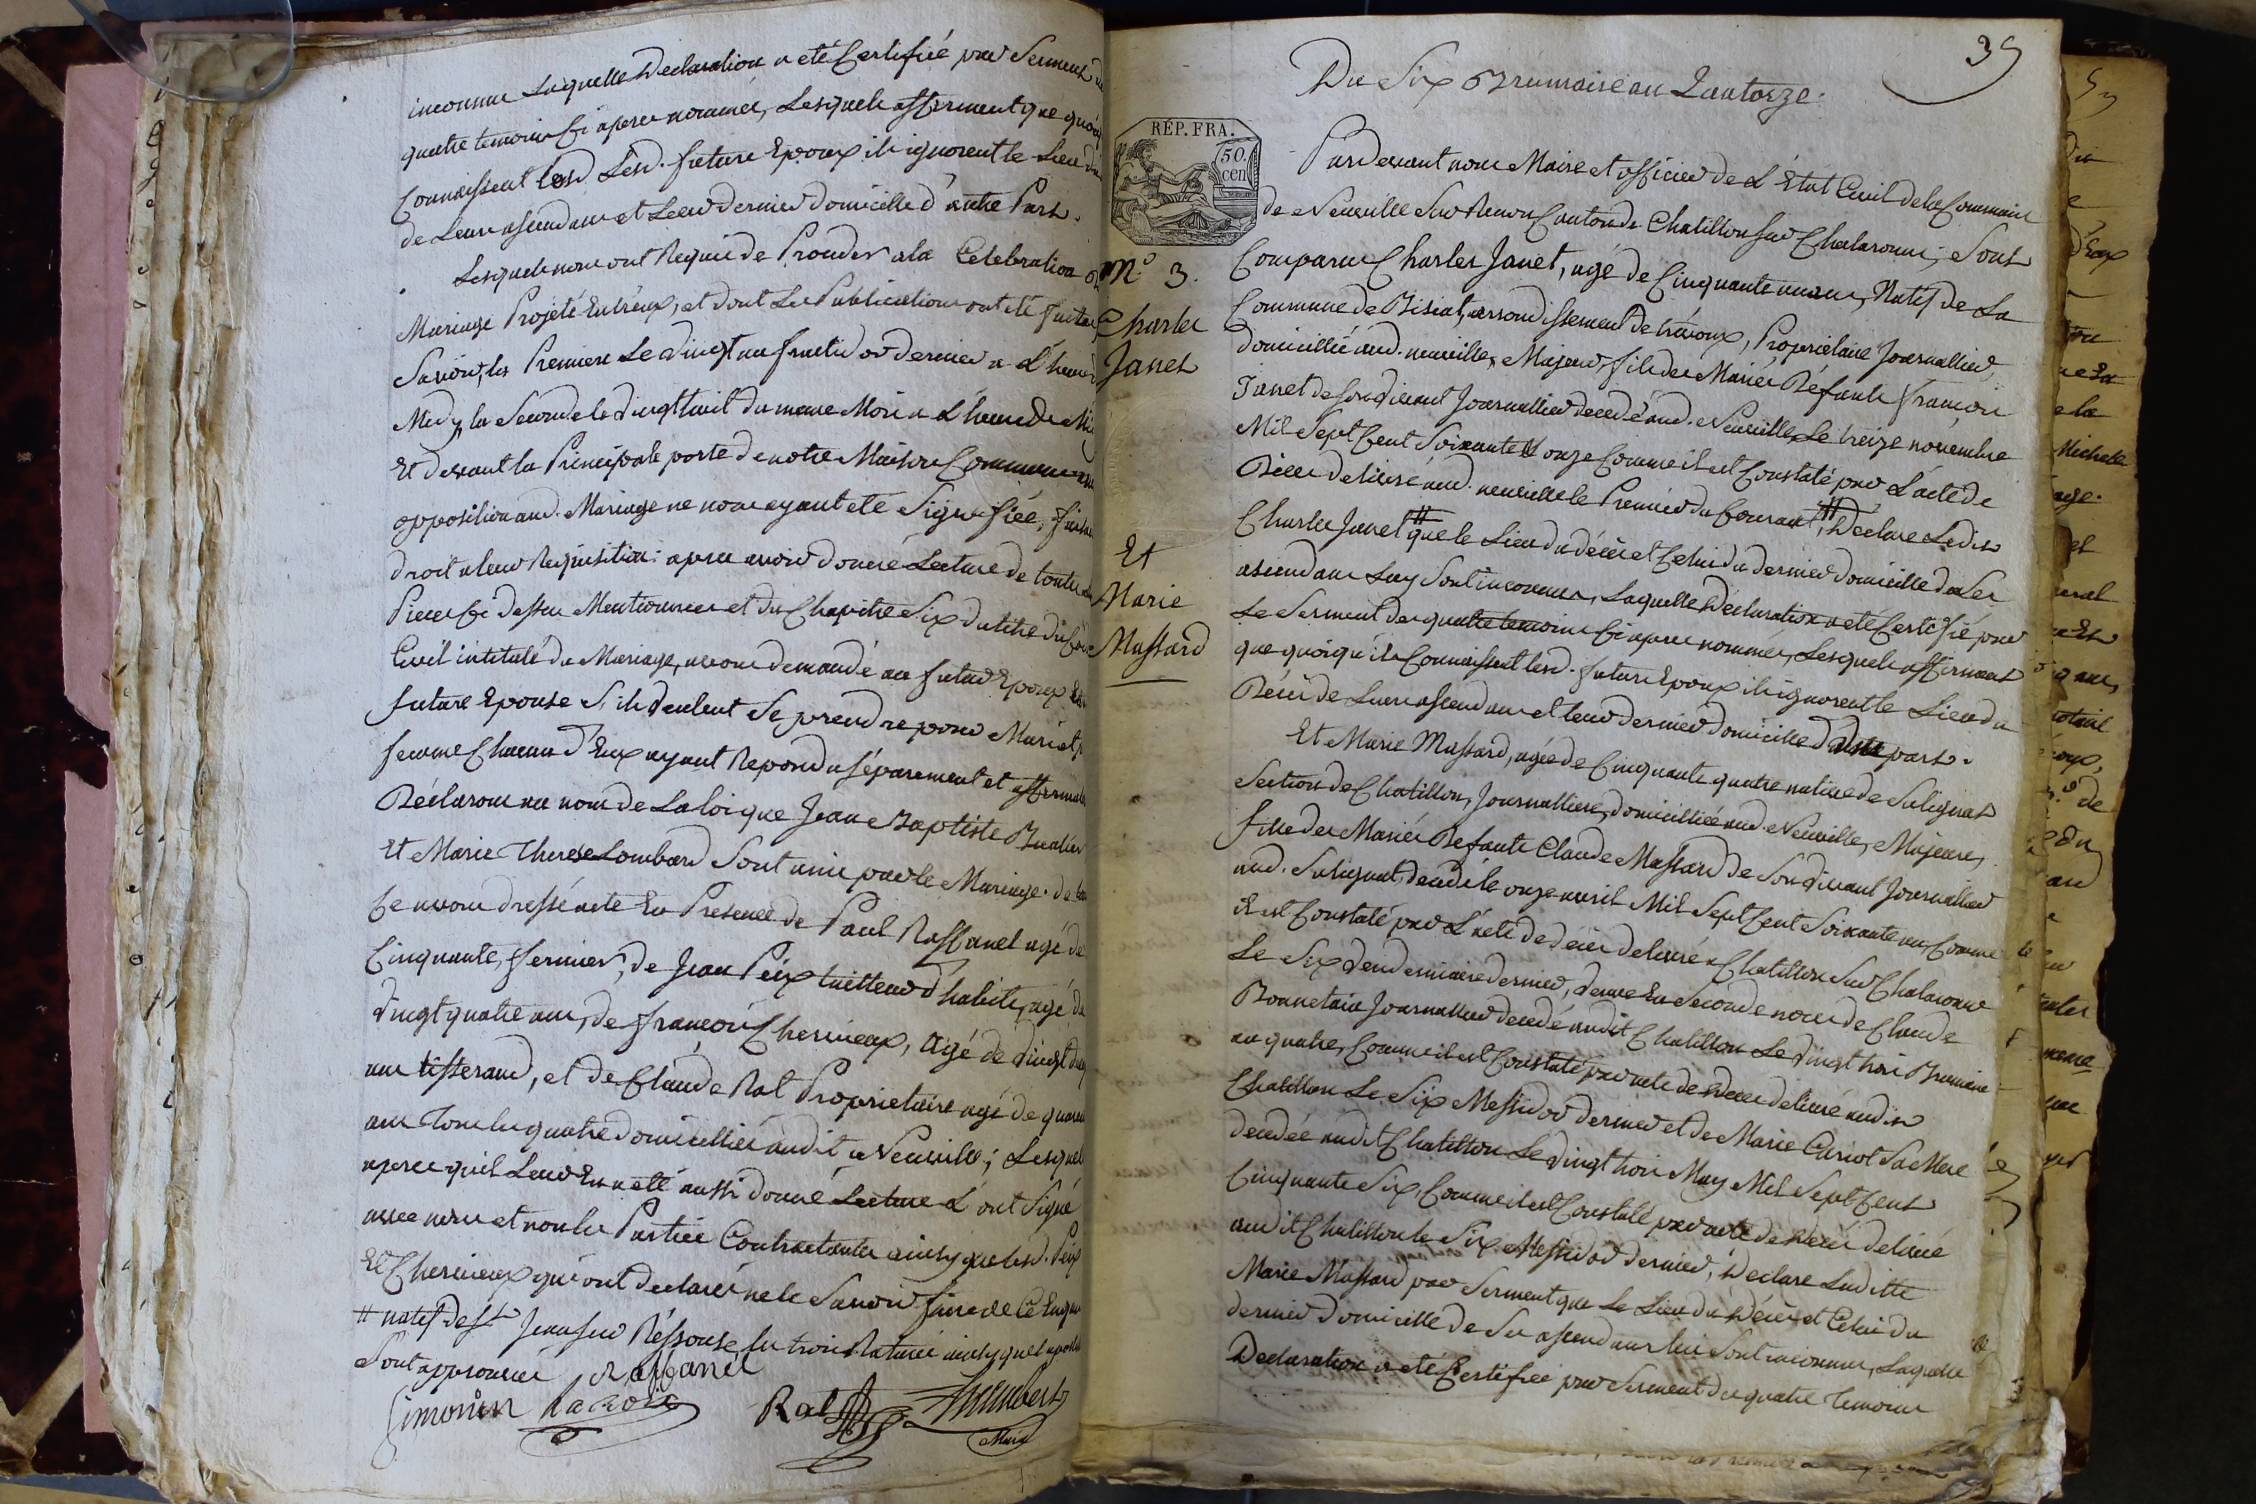 inconnu Laquelle Declaration a eté Certifiée par Serment de
quatre temoins Ci apres nommés, Lesquels afferment que quoiq
Connaissent Lesd. future Epoux ils ignorent le Lieu du
de Leurs ascendans et Leur dernier domicille d'autre Part.
Lesquels nous ont Requis de Proceder a la Celebration
Mariage Projeté Entréux, et dont Les Publications ont été faites
Savoir, les Premiere Le vingt un fructidor dernier a L'heure
Midy, la Seconde le vingt huit du meme Mois a L'heure de Mi
Et devant la Principale porte de notre Maison Commune
opposition aud. Mariage ne nous ayant eté Signifiée, faisant
droit a leur Requisition: apres avoir donné Lecture de toutes
Pieces Ci dessus Mentionnées et du Chapitre Six du titre du Code
Civil intitulé du Mariage, avons demandé au futur Epoux Et
future Epouse S'ils veulent Se prendre pour Mari et p
femme Chacun d'Eux ayant Repondu séparement et affirmat
Déclarons au nom de La loi que Jean Baptiste
Et Marie Therese Lombard Sont unis par le Mariage. de
Ce avons dressé acte En Presence de Paul Raffanel agé de
Cinquante, fermier, de Jean Péix tailleur d'habits, agé de
vingt quatre ans, de françois Cherineux, agé de vingt
ans tisserand, et de Claude Rat Proprietaire agé de quara
ans Tous les quatre domicilliés audit Neuville; Lesquels
apres qu'il Leur En a eté aussi donné Lecture L'ont Signé
avec nous et non les Parties Contractantes ainsy que lesd. Péix
Et Cherineux qui ont declarés ne le Savoir faire de Ce Enquis
# natif de St Jean sur Réssouse les trois Raturés ainsy que
Sont approuvés Raffanel
Simonin Lacroix Rat
Maire
39
Du Six Brumaire an Quatorze.
RÉP. FRA.
50.
cen
Pardevant nous Maire et officier de L'Etat Civil de la Commune
de Neuville Sur Renon Canton de Chatillon Sur Chalaronne, Sont
N.º 3.
Charles
Janet
Et
Marie
Massard
Comparu Charles Janet, agé de Cinquante un ans, Natif de La
Commune de Bisiat, arrondissement de trévoux, Proprietaire Journallier,
domicillié aud. neuville, Majeur, fils des Mariés Défunts François
Janet de Son vivant Journallier decedé aud. Neuville, Le treize novembre
Mil Sept Cent Soixante et onze Comme il est Constaté par L'acte de
Déces delivré aud. neuville le Premier du Courant, # Déclare Ledit
Charles Janet # que le Lieu du décès et Celui du dernier domicille de Ses
ascendans Luy Sont inconnus, Laquelle Déclaration a eté Certifié par
Le Serment des quatre temoins Ci apres nommés, Lesquels affirment
que quoiqu'ils Connaissent lesd. future Epoux ils ignorent le Lieu du
Décès de Leurs ascendans et leur dernier domicille d'autre part.
Et Marie Massard, agée de Cinquante quatre native de Sulignat
Section de Chatillon, Journalliere, domicilliée aud. Neuville, Majeure,
fille des Mariés Défunts Claude Massard de Son vivant Journallier
aud. Sulignat, decedé le onze avril Mil Sept Cent Soixante un Comme
il est Constaté par L'acte de décès delivré a Chatillon Sur Chalaronne
Le Six vendemiaire dernier, veuve En Seconde noces de Claude
Bonnetain Journallier decedé audit Chatillon Le vingt trois Brumaire
an quatre, Comme il est Constaté par acte de Déces delivré audit
Chatillon Le Six Messidor dernier et de Marie Curiot Sa Mere
decedée audit Chatillon Le vingt trois May Mil Sept Cent
Cinquante Six, Comme il est Constaté par acte de Décès delivré
audit Chatillon le Six Messidor dernier, Declare Laditte
Marie Massard par Serment que Le Lieu du Décès et Celui du
dernier Domicille de Ses ascendans lui Sont inconnus, Laquelle
Declaration a eté Certifiée par Serment des quatre Temoins